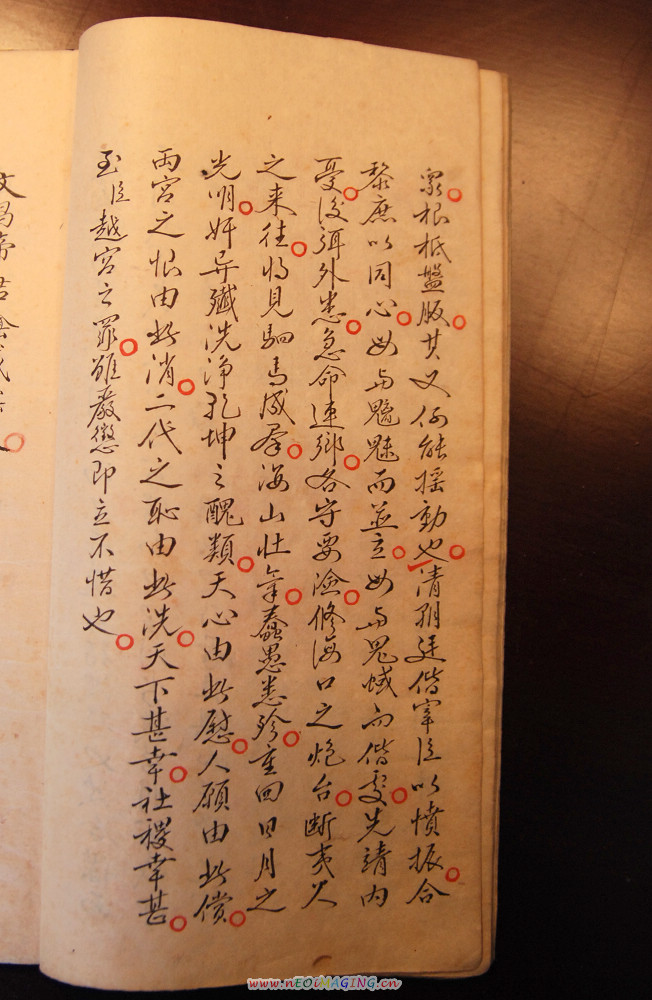 眾根柢盤踞其又何能搖動也清朝廷偕宰臣以憤振合
黎庶以同心毋与魑魅而並立毋与鬼蜮而偕處先靖内
憂後弭外患急命連鄉各守要險修海口之炮台断夷人
之来往将見駟馬成羣海山壮氣蠢愚悉殄重回日月之
光明奸异殲洗淨乾坤之醜類天心由此慰人願由此償
両宮之恨由此消二代之恥由此洗天下甚幸社稷幸甚
至臣越宮之罪雖嚴懲即立不惜也
文昌帝君
www.nEOiMAGING.cn